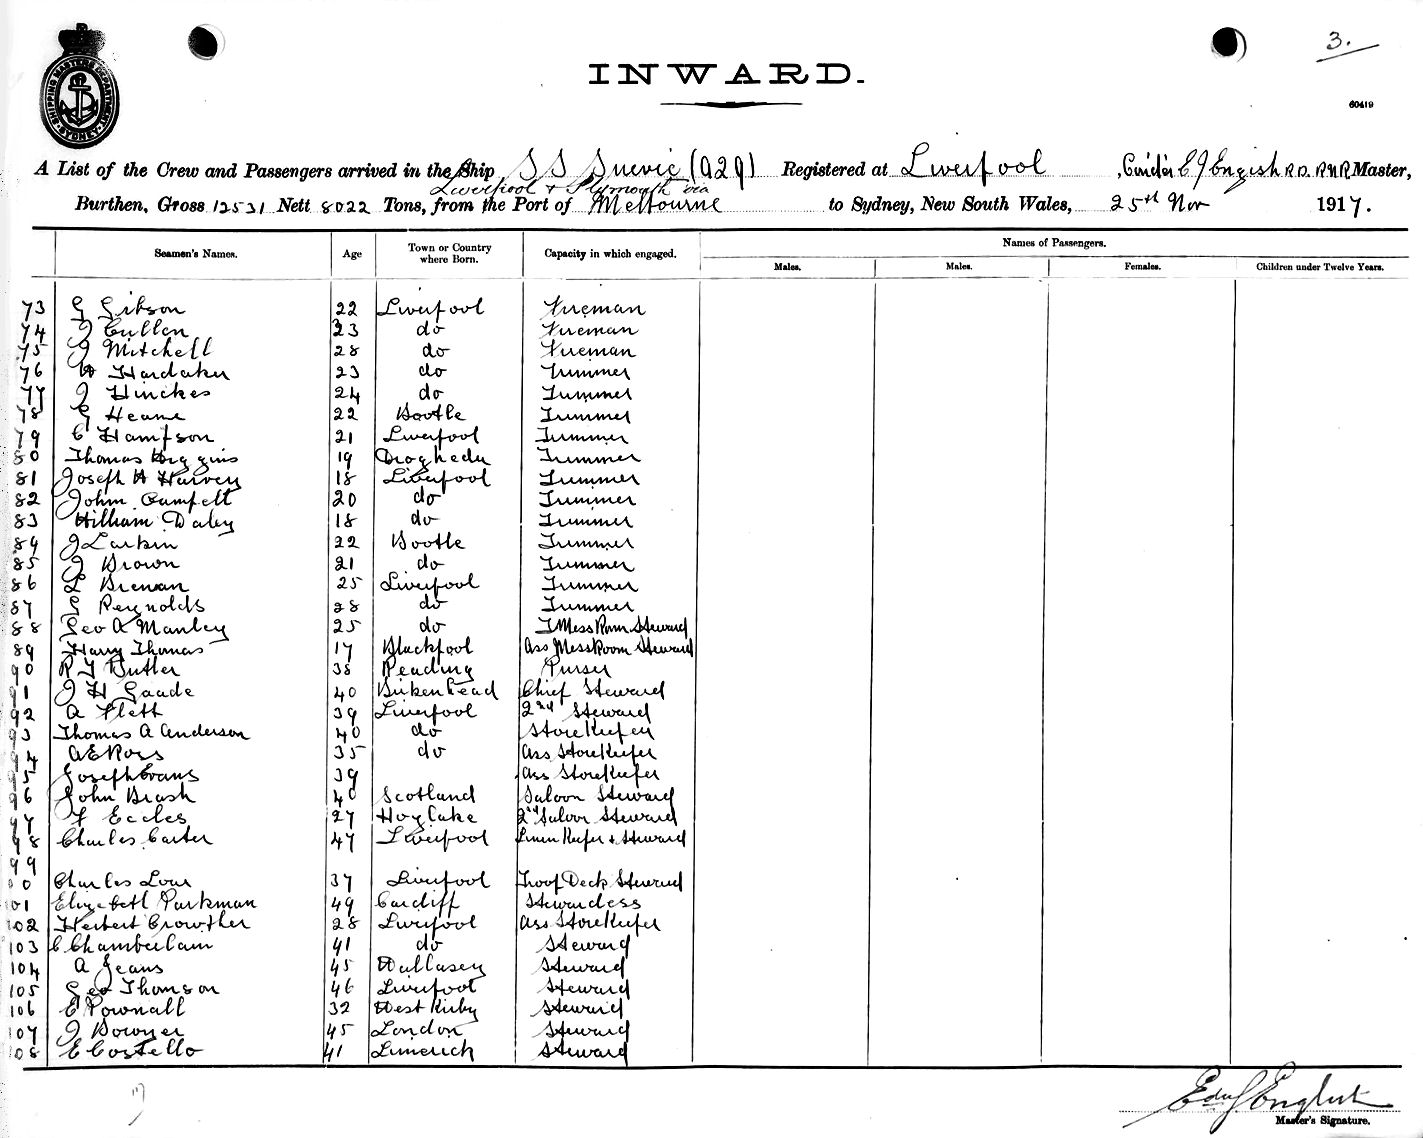 SHIPPING MASTERS DEPARTMENT SYDNEY
3.
INWARD.
60419
A List of the Crew and Passengers arrived in the Ship S S Suevic (A29) Registered at Liverpool, E J English R.D. RNR Master,
Liverpool & Plymouth via
Burthen, Gross 12531 Nett 8022 Tons, from the Port of Melbourne to Sydney, New South Wales, 25th Nov 1917.
Names of Passengers.
Seamen's Names. Age Town or Country where Born. Capacity in which engaged. Males. Males. Females. Children under Twelve Years.
73 G Gibson 22 Liverpool Fireman
74 J Cullen 23 do Fireman
75 J Mitchell 28 do Fireman
76 W Hardaker 23 do Trimmer
77 J Hinckes 24 do Trimmer
78 G Heane 22 Bootle Trimmer
79 C Hampson 21 Liverpool Trimmer
80 Thomas Higgins 19 Drogheda Trimmer
81 Joseph H Harvey 18 Liverpool Trimmer
82 John 20 do Trimmer
83 William Daley 18 do Trimmer
84 J Larkin 22 Bootle Trimmer
85 J Brown 21 do Trimmer
86 L Brennan 25 Liverpool Trimmer
87 G Reynolds 28 do Trimmer
88 Geo A Manley 25 do Mess Room Steward
89 Harry Thomas 17 Blackpool Ass Mess Room Steward
90 Butler 38 Reading Purser
91 J H Gaade 40 Birkenhead Chief Steward
92 A Flett 39 Liverpool 2nd Steward
93 Thomas A Anderson 40 do Storekeeper
94 A E Ross 35 do Ass Storekeeper
95 Joseph Evans 39 Ass Storekeeper
96 John Brash 40 Scotland Saloon Steward
97 F Eccles 27 Hoylake 2nd Saloon Steward
98 Charles Carter 47 Liverpool Linen Keeper & Steward
99
00 Charles 37 Liverpool Troop Deck Steward
101 Elizabeth Parkman 49 Cardiff Stewardess
102 Herbert Crowther 28 Liverpool Ass Storekeeper
103 C Chamberlain 41 do Steward
104 A Jeans 45 Wallasey Steward
105 Geo Thomson 46 Liverpool Steward
106 E Pownall 32 West Kirby Steward
107 J Bowyer 45 London Steward
108 E Costello 41 Limerick Steward
Edw J English
Master's Signature.